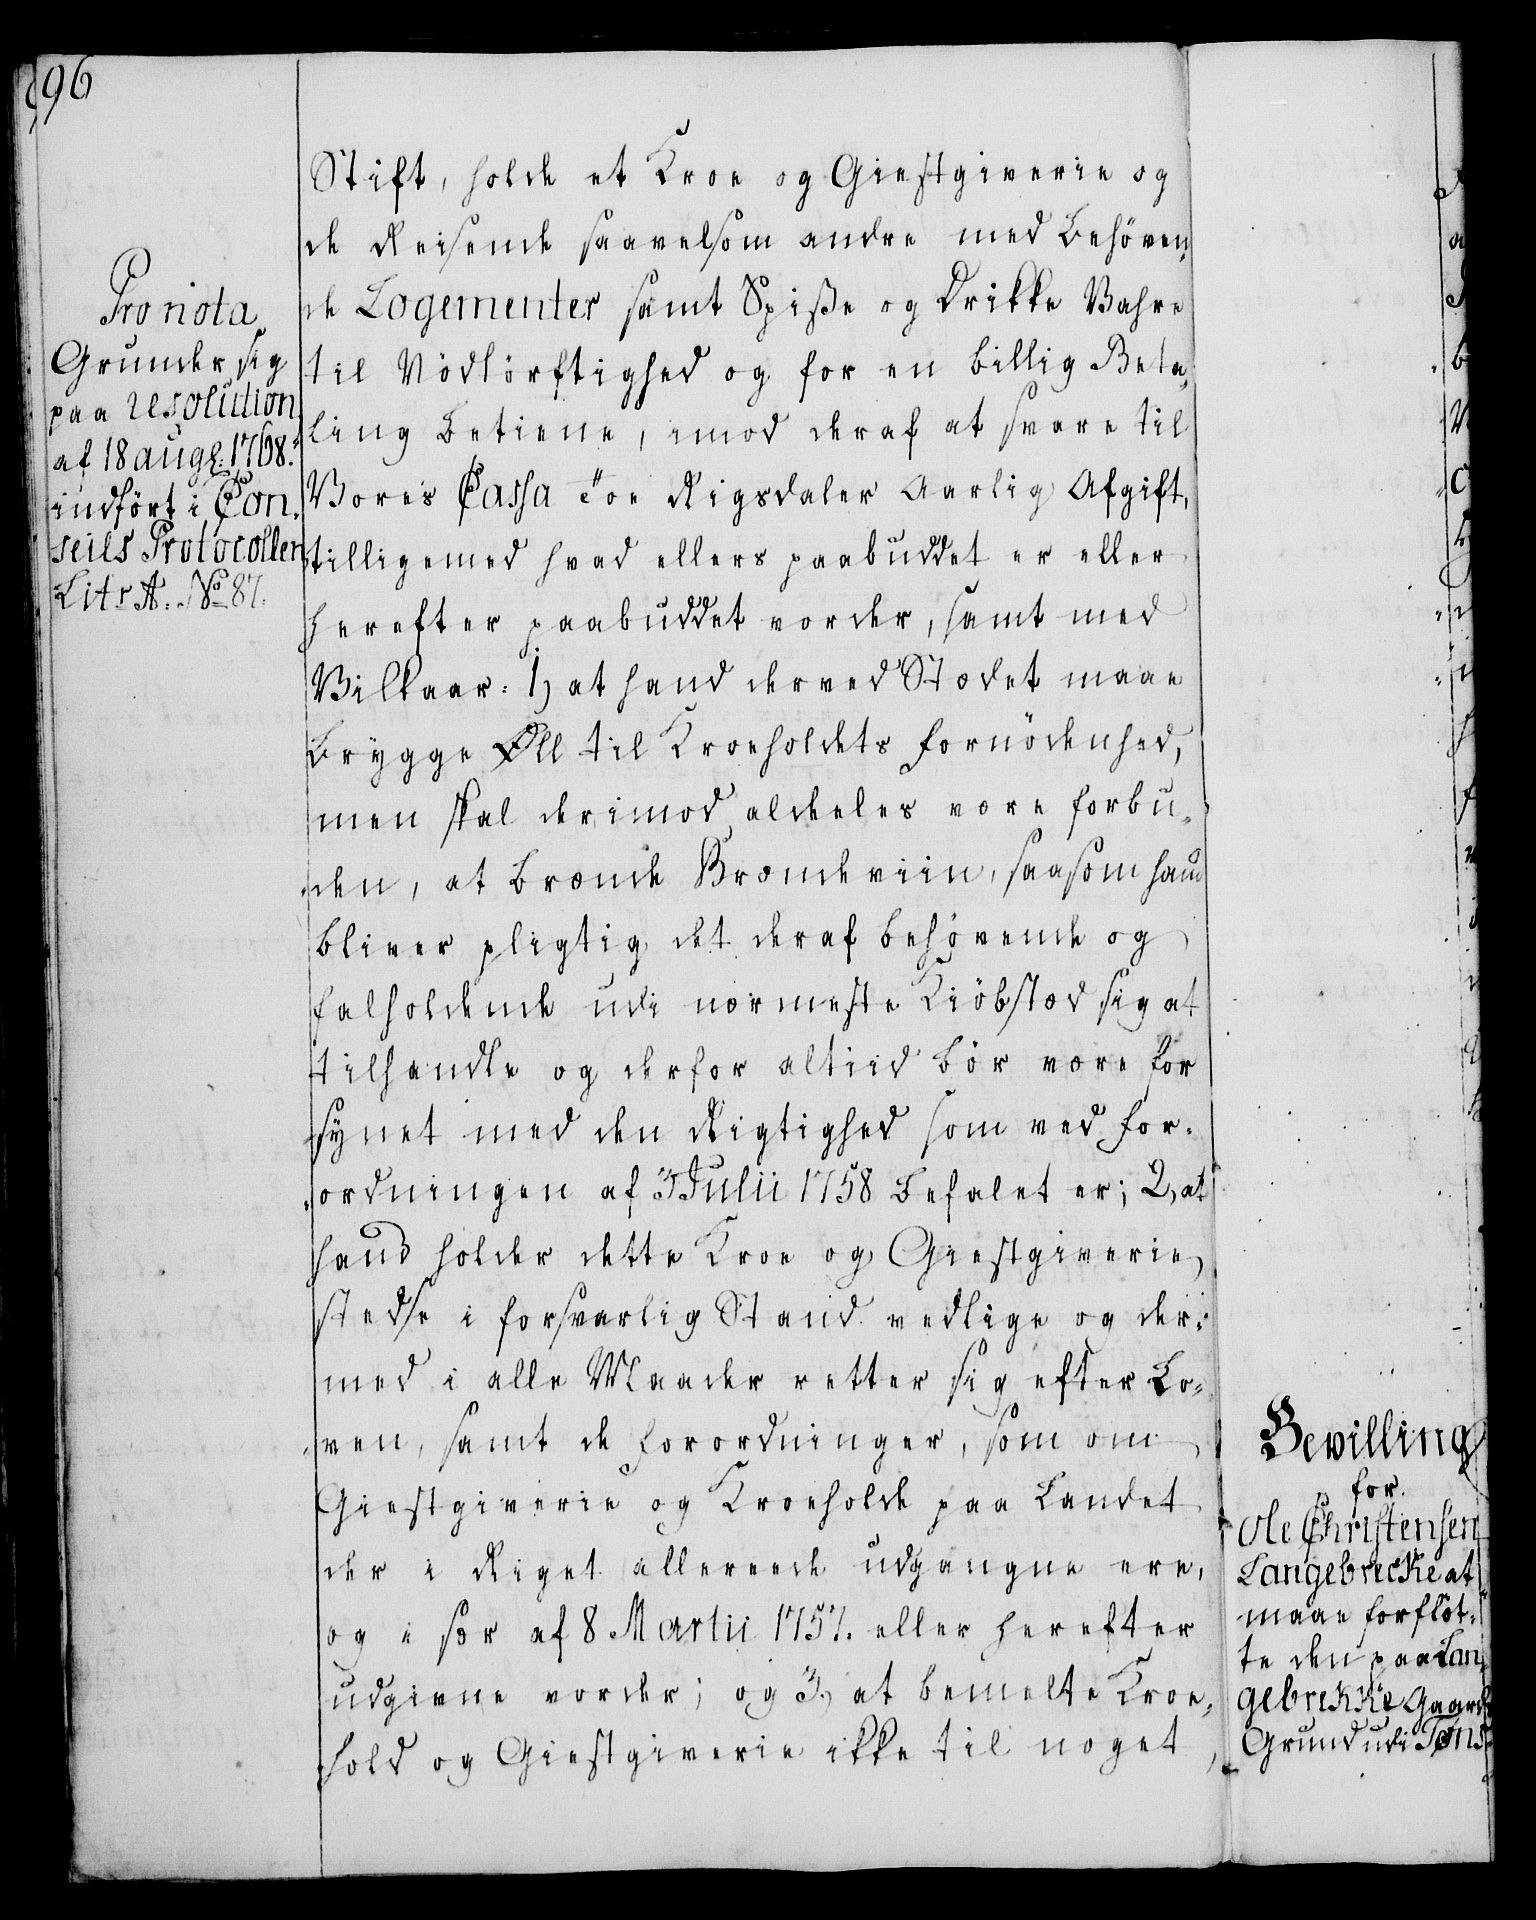 96
Pro nota
Grunder sig
paa resolution
af 18 augs: 1768.
indført i Con-
seils Protocollen
Litr A. No 87.
Stift, holde et Kroe og Giestgiverie og
de Reisende saavelsom andre med behøven-
de Logementer samt Spiße og Drikke Vahre
til Nødtørftighed og for en billig Beta-
ling betiene, imod deraf at svare til
Vores Cassa Toe Rigsdaler Aarlig Afgift,
tilligemed hvad ellers paabuddet er eller
herefter paabuddet vorder, samt med
Vilkaar: 1) at hand derved Stædet maae
brygge Øll til Kroeholdets fornødenhed,
men skal derimod aldeeles være forbu-
den, at brænde Brændeviin, saasom hand
bliver pligtig det deraf behøvende og
falholdende udi nærmeste Kiøbstæd sig at
tilhandle og derfor altiid bør være for
synet med den Rigtighed som ved for-
ordningen af 3 Julii 1758 befalet er; 2, at
hand holder dette Kroe og Giestgiverie
stedse i forsvarlig Stand vedlige og der-
med i alle Maader retter sig efter Lo-
ven, samt de forordninger, som om
Giestgiverie og Kroeholde paa Landet
der i Riget allereede udgangne ere,
og i sær af 8 Martii 1757. eller herefter
udgivne vorder; og 3, at bemelte Kroe-
hold og Giestgiverie ikke til noget
Bevilling
for
Ole Christensen
Langebrecke at
maae forflöt-
te den paa Lan-
gebrekke Gaards
Grund udi Tøns-